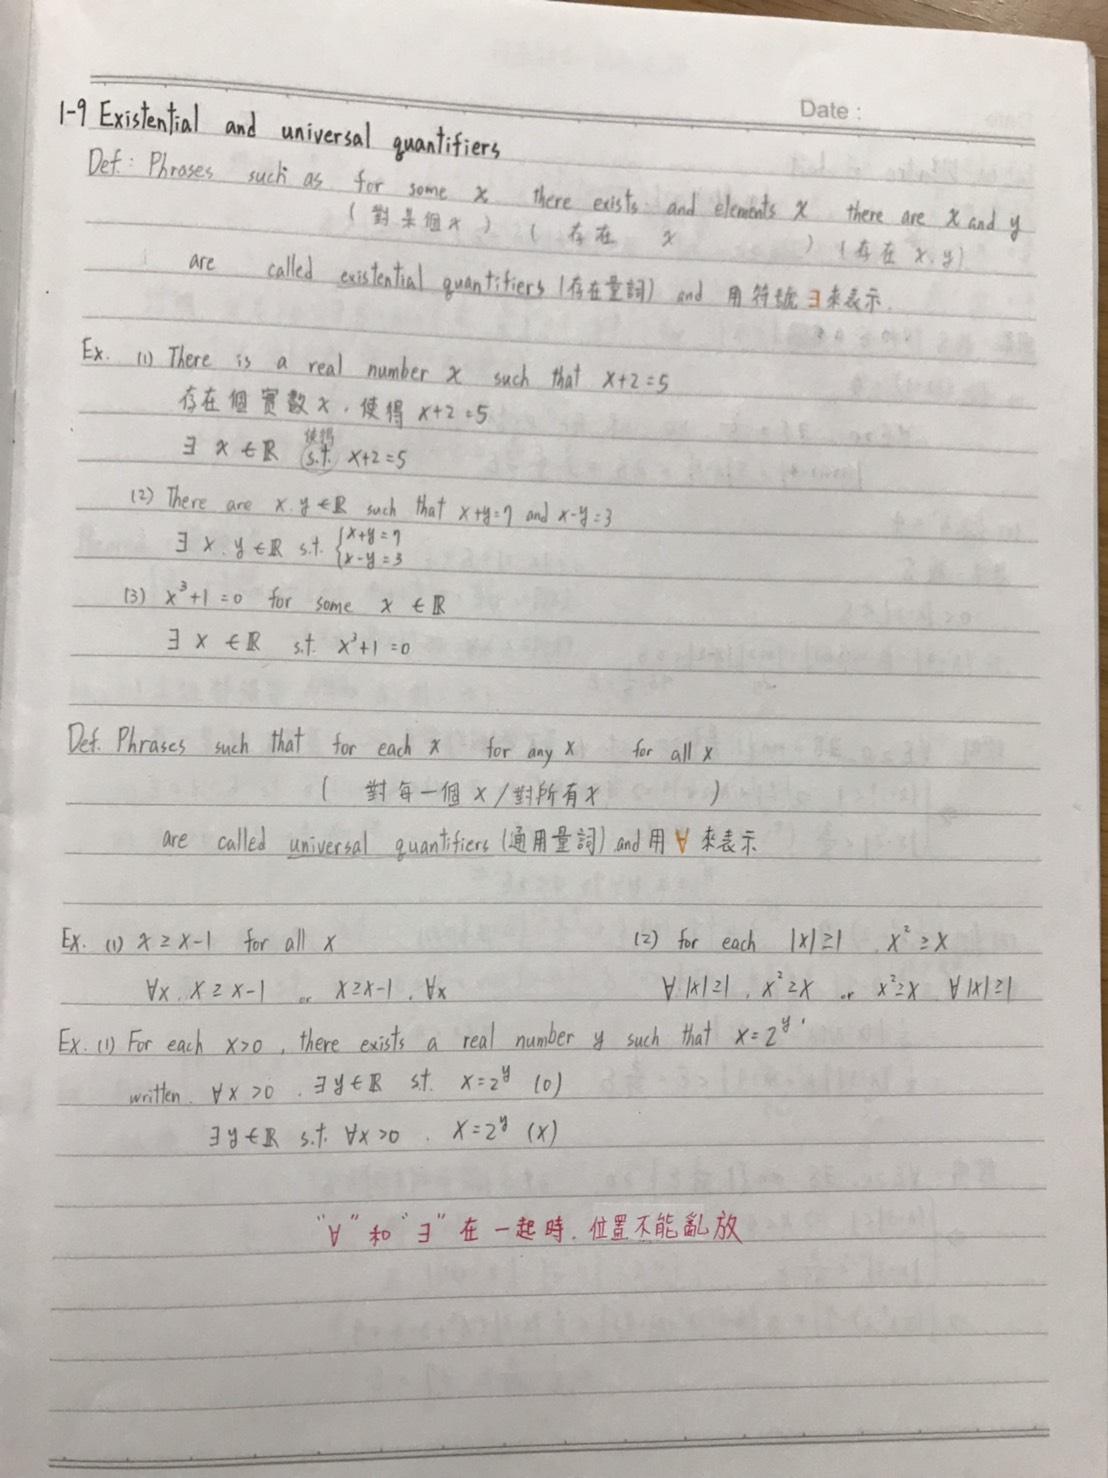 Date :
1-9 Existential and universal quantifiers
Def.: Phrases such as for some x there exists and elements x there are x and y
(對某個x) (存在 x) (存在 x.y)
are called existential quantifiers (存在量詞) and 用符號∃來表示.
Ex. (1) There is a real number x such that x+2=5
存在個實數x.使得 x+2=5
使得
∃ x ∈ ℝ s.t. x+2=5
(2) There are x.y ∈ ℝ such that x+y=7 and x-y=3
∃ x.y ∈ ℝ s.t. { x+y=7
x-y=3
(3) x³+1=0 for some x ∈ ℝ
∃ x ∈ ℝ s.t. x³+1=0
Def. Phrases such that for each x for any x for all x
( 對每一個x/對所有x )
are called universal quantifiers (通用量詞) and 用 ∀ 來表示
Ex. (1) x ≥ x-1 for all x (2) for each |x|≥1 . x² ≥ x
∀x . x ≥ x-1 or x≥x-1 . ∀x ∀ |x|≥1 . x²≥x or x²≥x . ∀|x|≥1
Ex. (1) For each x>0 , there exists a real number y such that x=2^y.
written. ∀x>0 . ∃y∈ℝ s.t. x=2^y (o)
∃y∈ℝ s.t. ∀x>0 . x=2^y (x)
"∀" 和 "∃" 在一起時.位置不能亂放